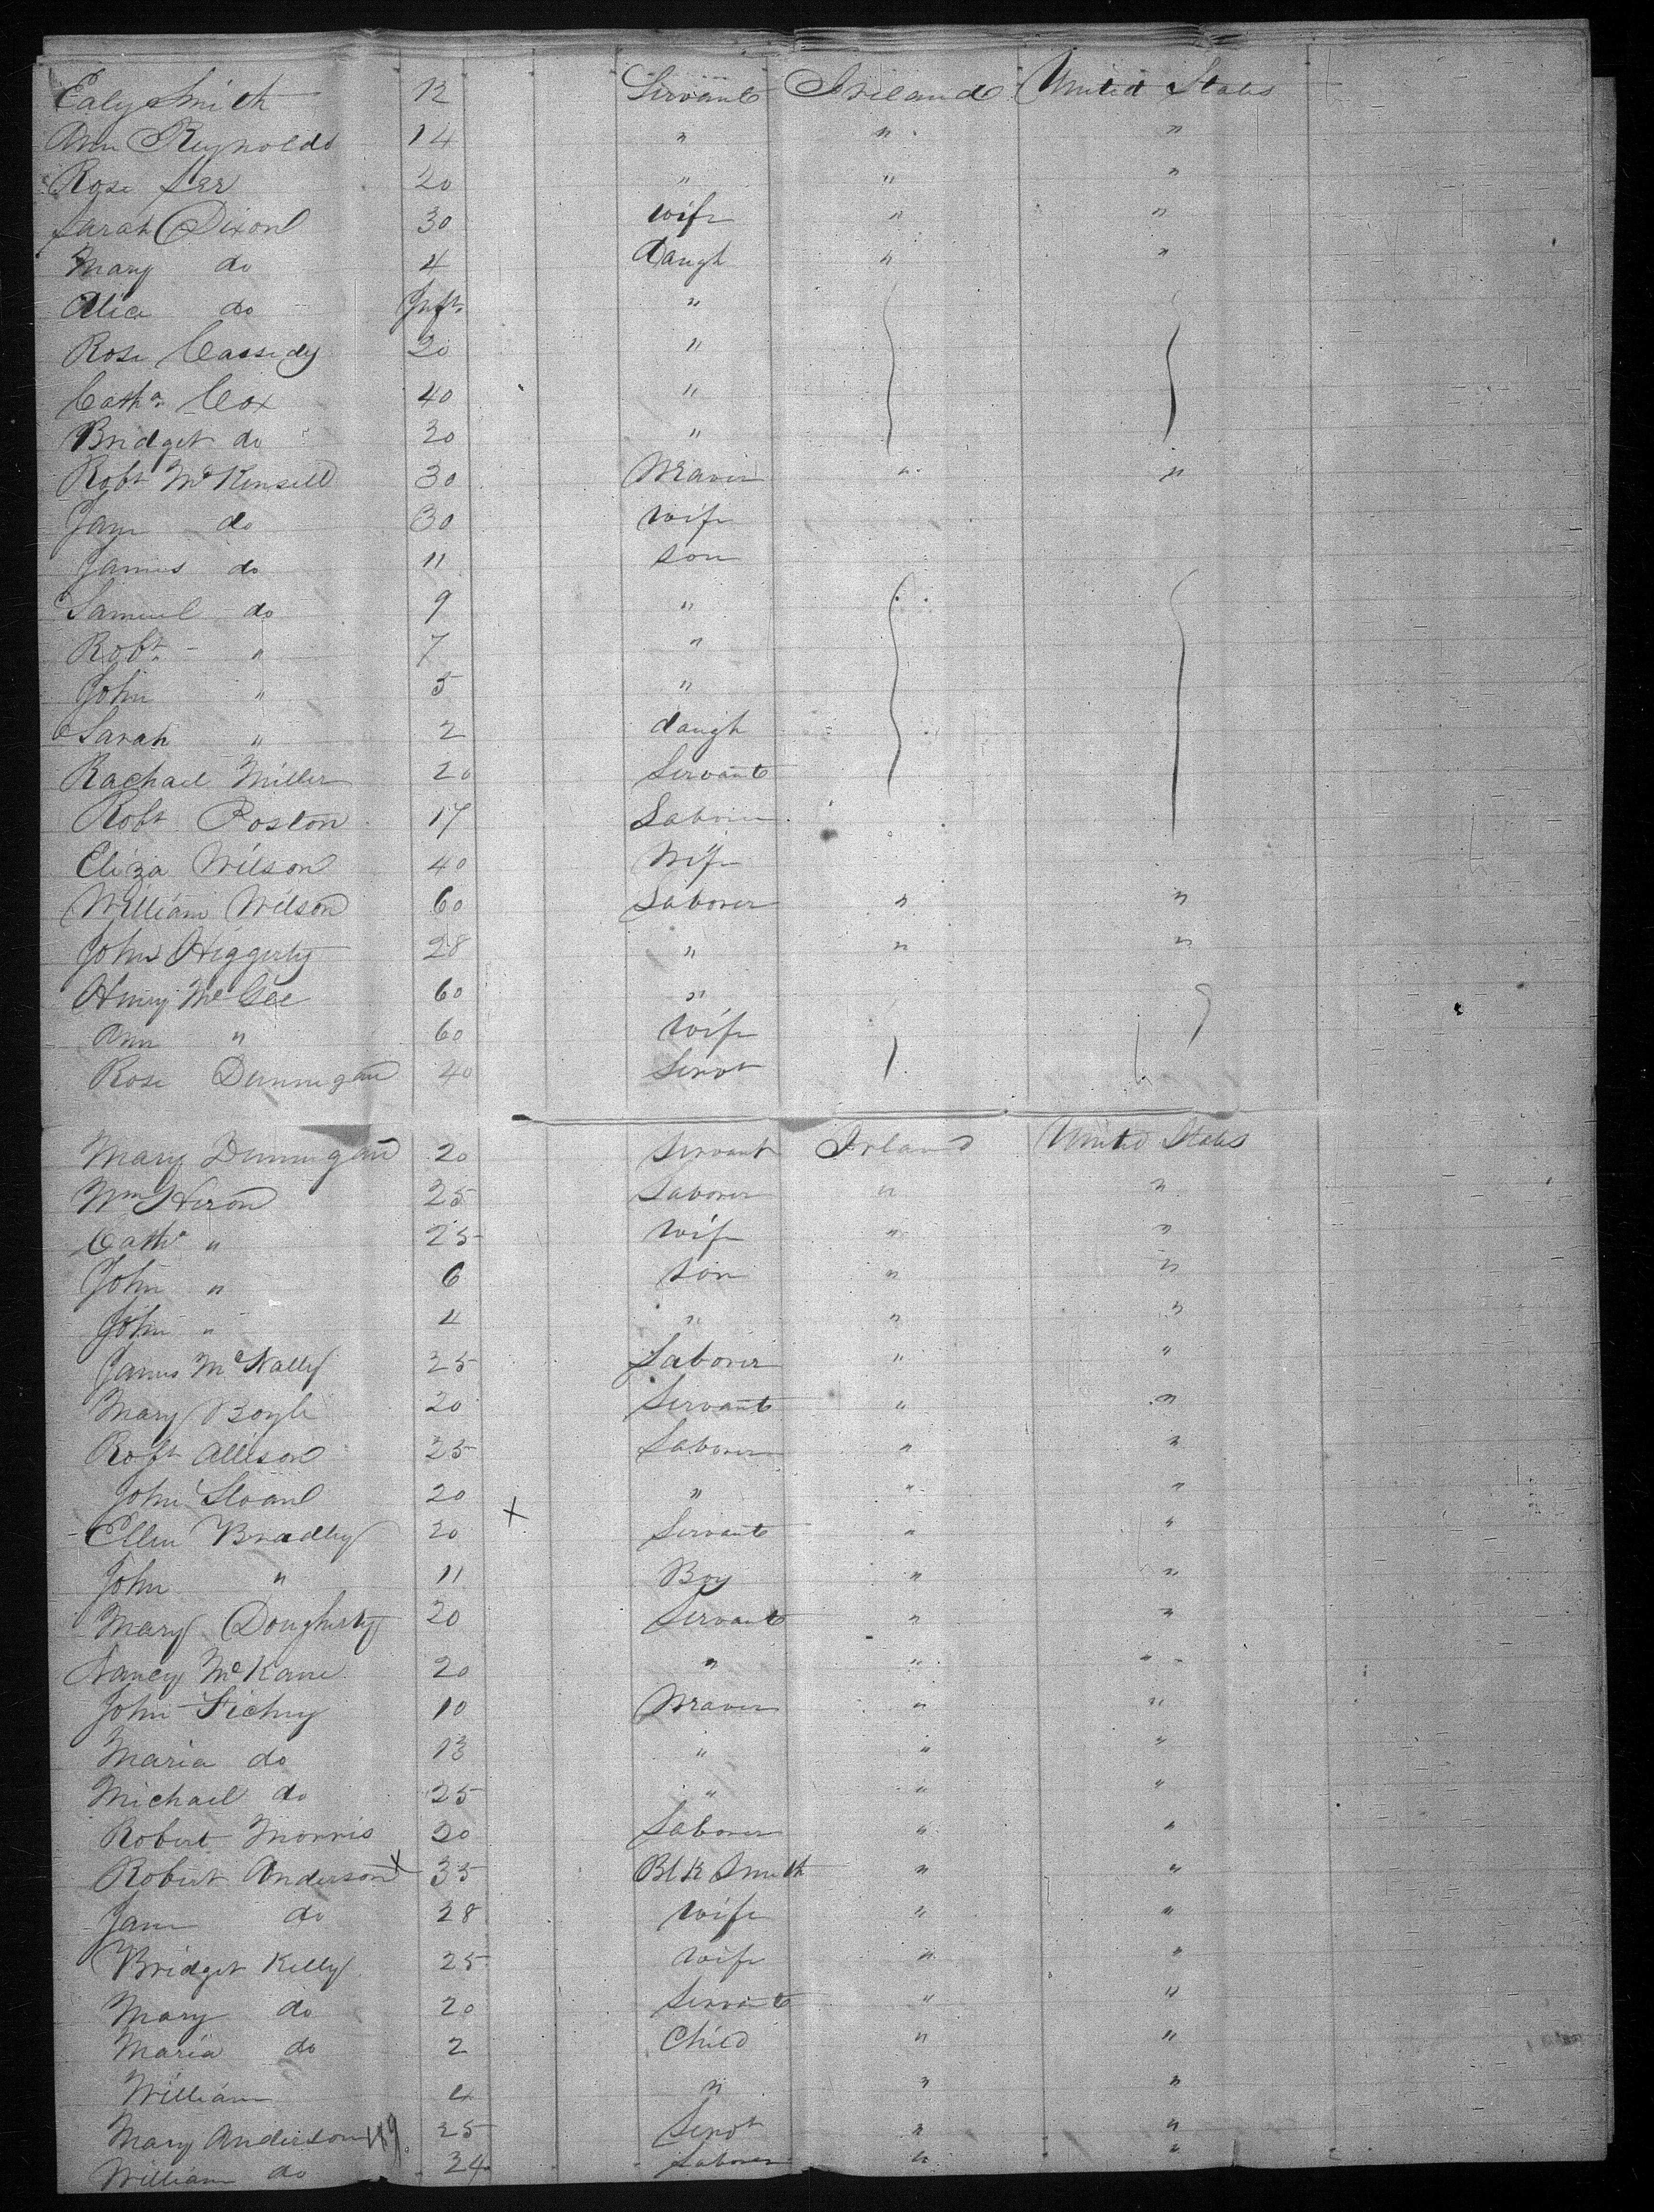 Ealy Smith 12 Servant Ireland United States
Ann Reynolds 14 " " "
Rose 20 " " "
Sarah Dixon 30 wife " "
Mary do 4 Daugh " "
Alice do Inft "
Rose Cassidy 20 "
Cath Cox 40 "
Bridget do 20 "
Robt McKinsell 30 Weaver " "
Jane do 30 wife
James do 11 son
Samuel do 9 "
Robt " 7 "
John " 5 "
Sarah " 2 daugh
Rachael Miller 20 Servant
Robt Poston 17 Laborer
Eliza Wilson 40 Wife
William Wilson 60 Laborer " "
John Higgerty 28 " " "
Henry McGee 60 "
Ann " 60 wife
Rose Dunnigan 40 Servt
Mary Dunnigan 20 Servant Irland United States
Wm Heron 25 Laborer " "
Cath " 25 wife " "
John " 6 son " "
John " 4 " " "
James McNally 25 Laborer " "
Mary Boyle 20 Servant " "
Robt Allison 25 Laborer " "
John Sloan 20 " " "
Ellen Bradley 20 x Servant " "
John " 11 Boy " "
Mary Dougherty 20 Servant " "
Nancy McKane 20 " " "
John 10 Weaver " "
Maria do 13 " " "
Michael do 25 " " "
Robert Morris 30 Laborer " "
Robert Anderson x 35 Blk Smith " "
Jane do 28 wife " "
Bridget Kelly 25 wife " "
Mary do 20 Servant " "
Maria do 2 Child " "
William 4 " " "
Mary Anderson 25 Servt " "
William do 24 Laborer " "